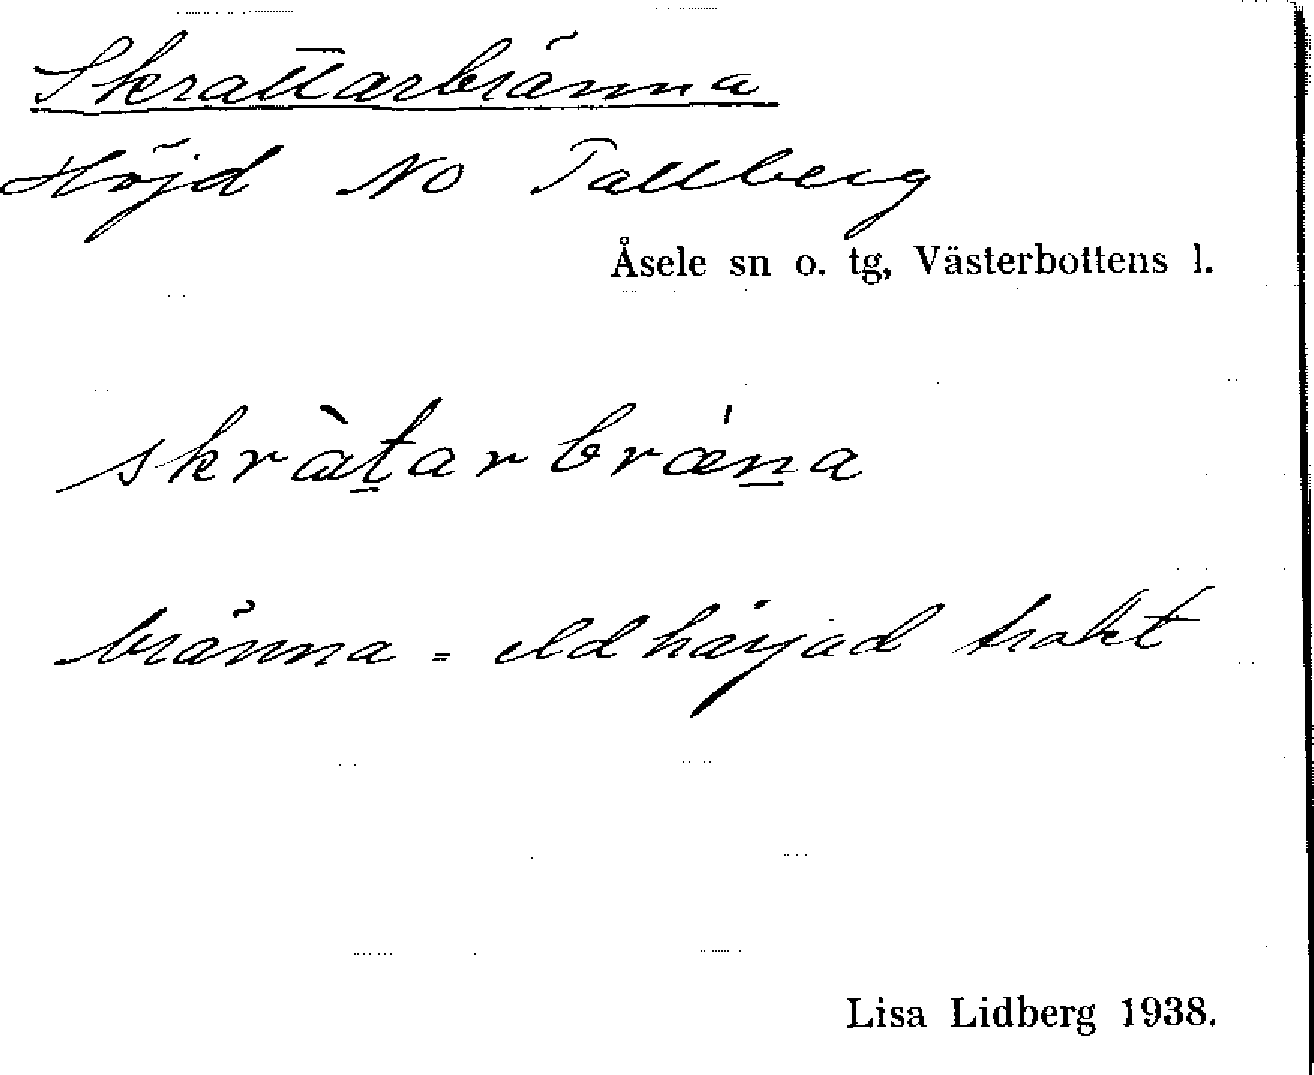 Skrattarbränna
Höjd NO Tallberg
Åsele sn o. tg, Västerbottens l.
skràt̲arbræ̍n̲a
bränna = eldhärjad trakt
Lisa Lidberg 1938.